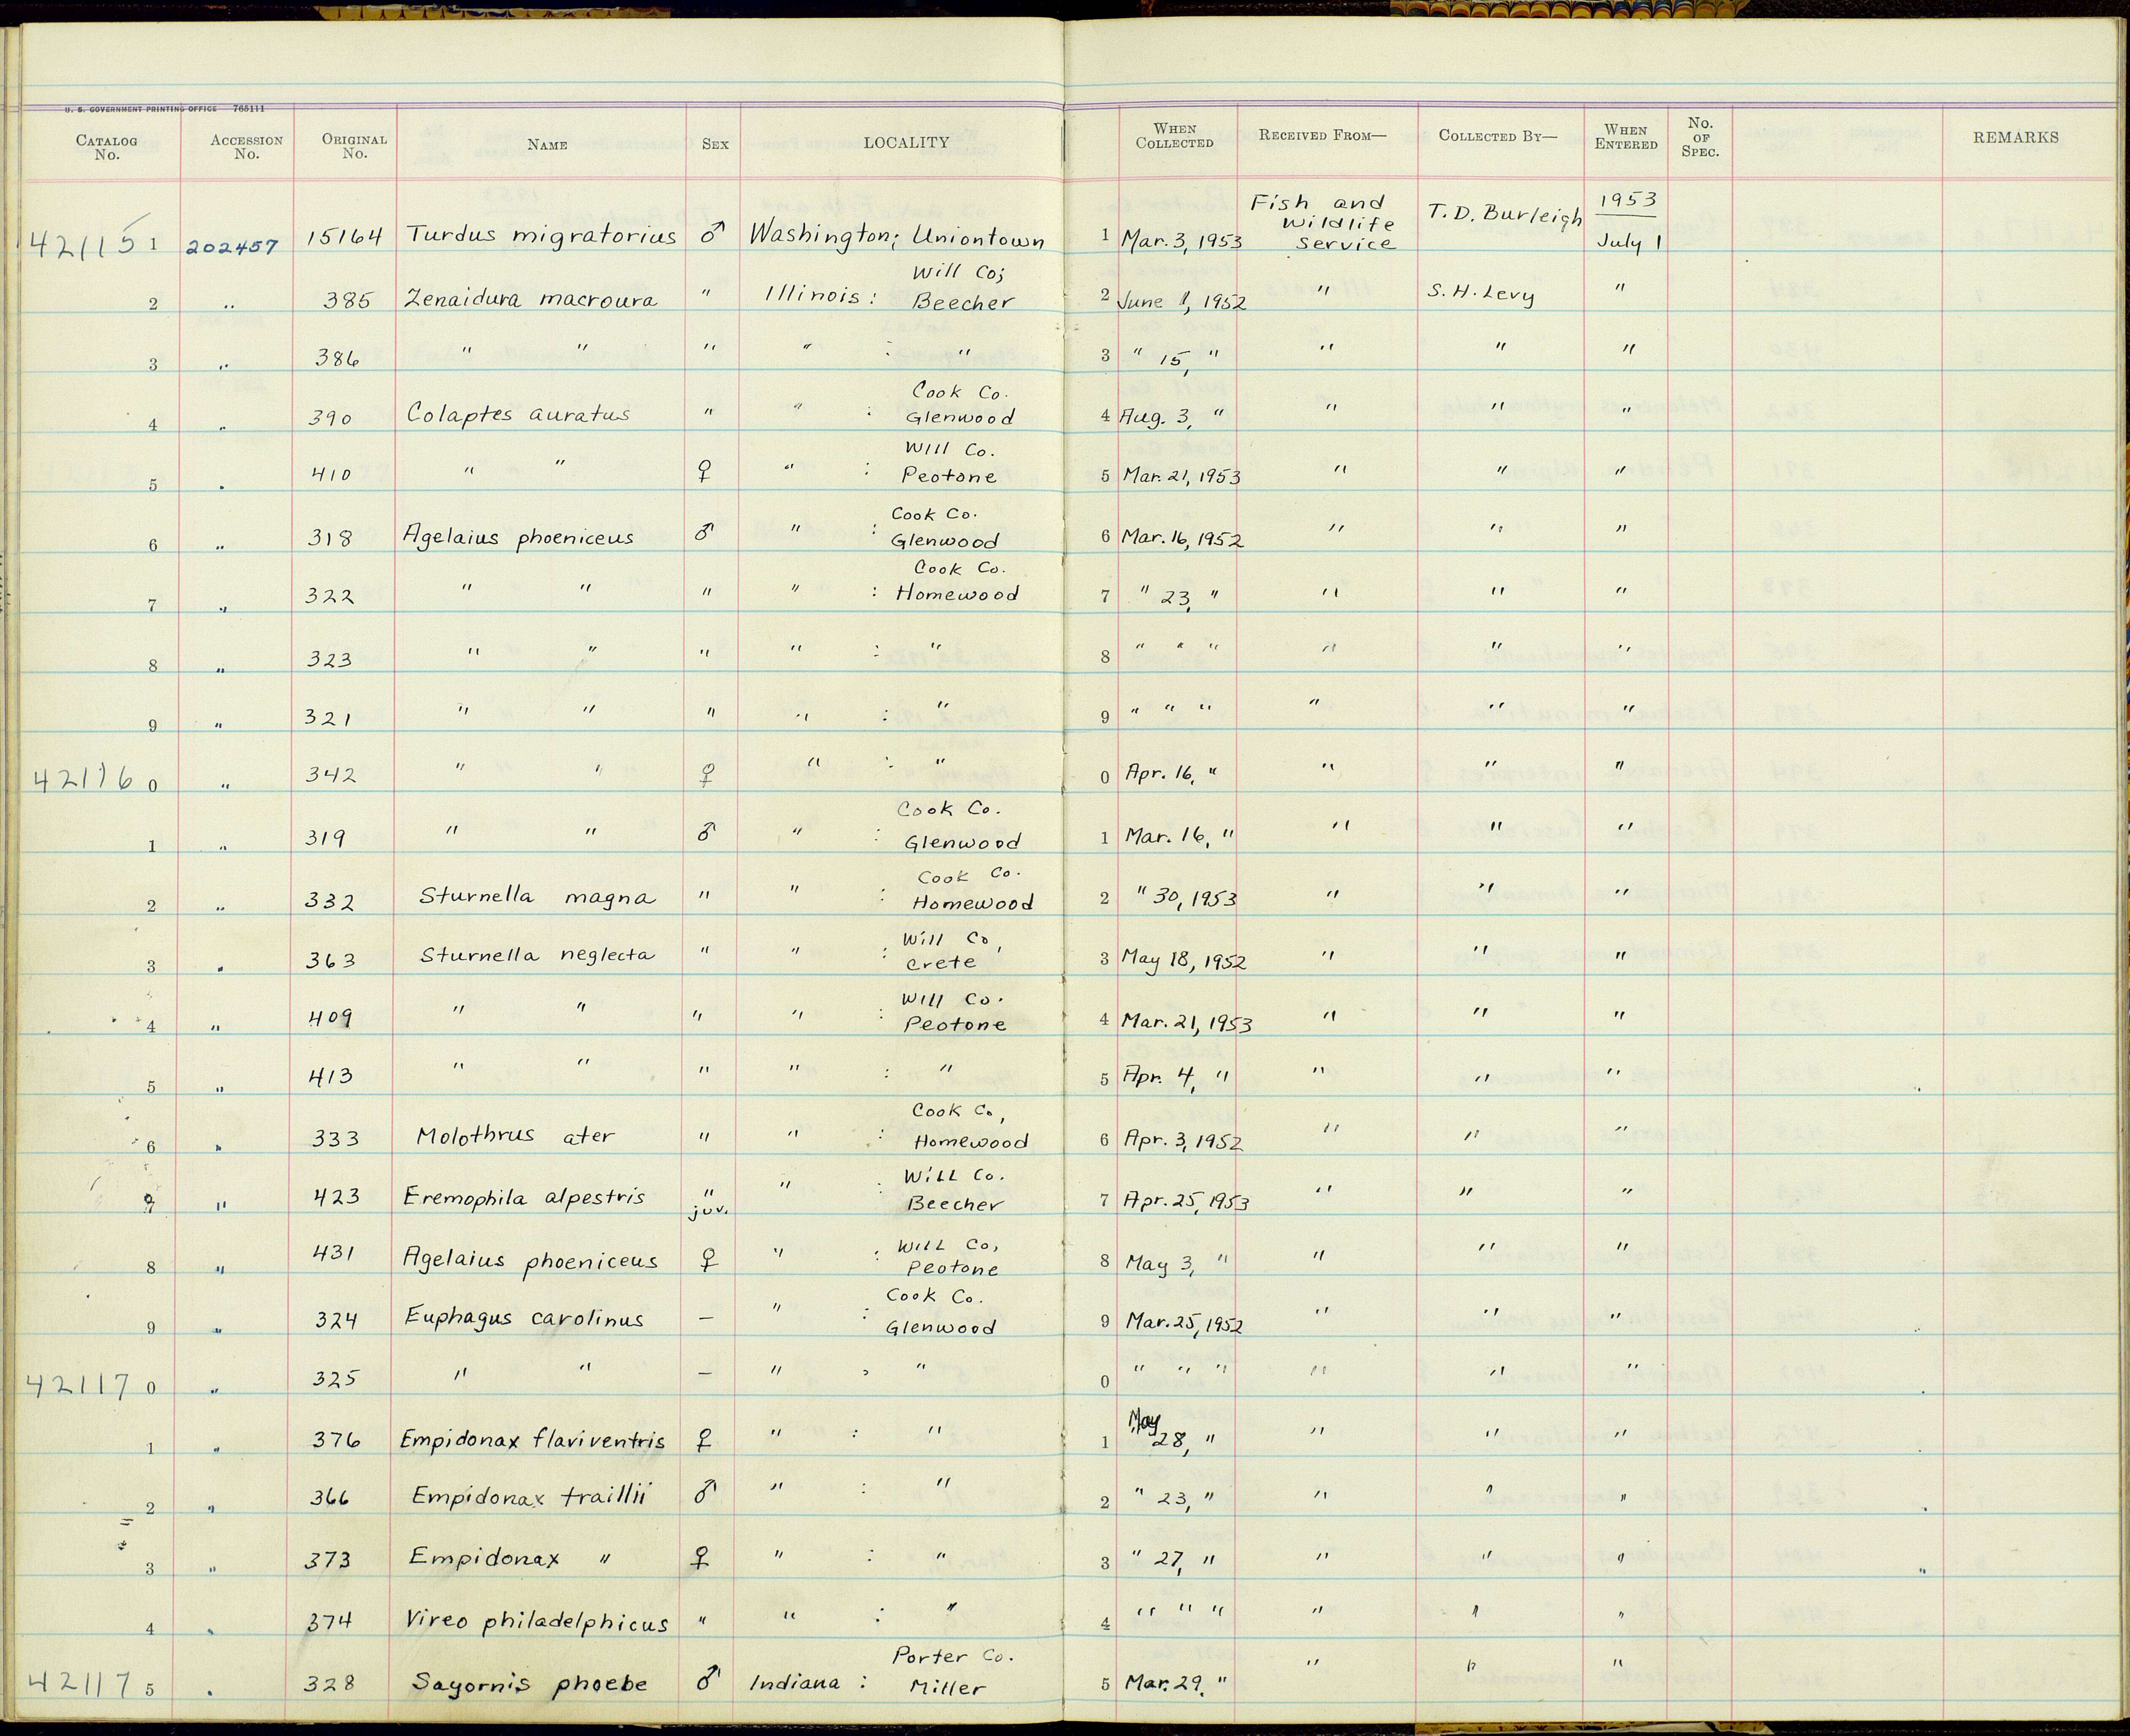 U. S. GOVERNMENT PRINTING OFFICE 765111
CATALOG No. ACCESSION No. ORIGINAL No. NAME SEX LOCALITY WHEN COLLECTED RECEIVED FROM— COLLECTED BY— WHEN ENTERED No. OF SPEC. REMARKS
42115 1 202457 15164 Turdus migratorius ♂ Washington; Uniontown 1 Mar. 3, 1953 Fish and Wildlife Service T. D. Burleigh 1953 July 1
2 " 385 Zenaidura macroura " Illinois : Will Co; Beecher 2 June 1, 1952 " S. H. Levy "
3 " 386 " " " " : " 3 " 15, " " " "
4 " 390 Colaptes auratus " " : Cook Co. Glenwood 4 Aug. 3, " " " "
5 " 410 " " ♀ " : Will Co. Peotone 5 Mar. 21, 1953 " " "
6 " 318 Agelaius phoeniceus ♂ " : Cook Co. Glenwood 6 Mar. 16, 1952 " " "
7 " 322 " " " " : Cook Co. Homewood 7 " 23, " " " "
8 " 323 " " " " : " 8 " " " " " "
9 " 321 " " " " : " 9 " " " " " "
42116 0 " 342 " " ♀ " : " 0 Apr. 16, " " " "
1 " 319 " " ♂ " : Cook Co. Glenwood 1 Mar. 16, " " " "
2 " 332 Sturnella magna " " : Cook Co. Homewood 2 " 30, 1953 " " "
3 " 363 Sturnella neglecta " " : Will Co, Crete 3 May 18, 1952 " " "
4 " 409 " " " " : Will Co. Peotone 4 Mar. 21, 1953 " " "
5 " 413 " " " " : " 5 Apr. 4, " " " "
6 " 333 Molothrus ater " " : Cook Co, Homewood 6 Apr. 3, 1952 " " "
7 " 423 Eremophila alpestris " juv. " : Will Co. Beecher 7 Apr. 25, 1953 " " "
8 " 431 Agelaius phoeniceus ♀ " : Will Co, Peotone 8 May 3, " " " "
9 " 324 Euphagus carolinus — " : Cook Co. Glenwood 9 Mar. 25, 1952 " " "
42117 0 " 325 " " — " , " 0 " " " " " "
1 " 376 Empidonax flaviventris ♀ " : " 1 May 28, " " " "
2 " 366 Empidonax traillii ♂ " : " 2 " 23, " " " "
3 " 373 Empidonax " ♀ " : " 3 " 27, " " " "
4 " 374 Vireo philadelphicus " " : " 4 " " " " " "
42117 5 " 328 Sayornis phoebe ♂ Indiana : Porter Co. Miller 5 Mar. 29. " " " "